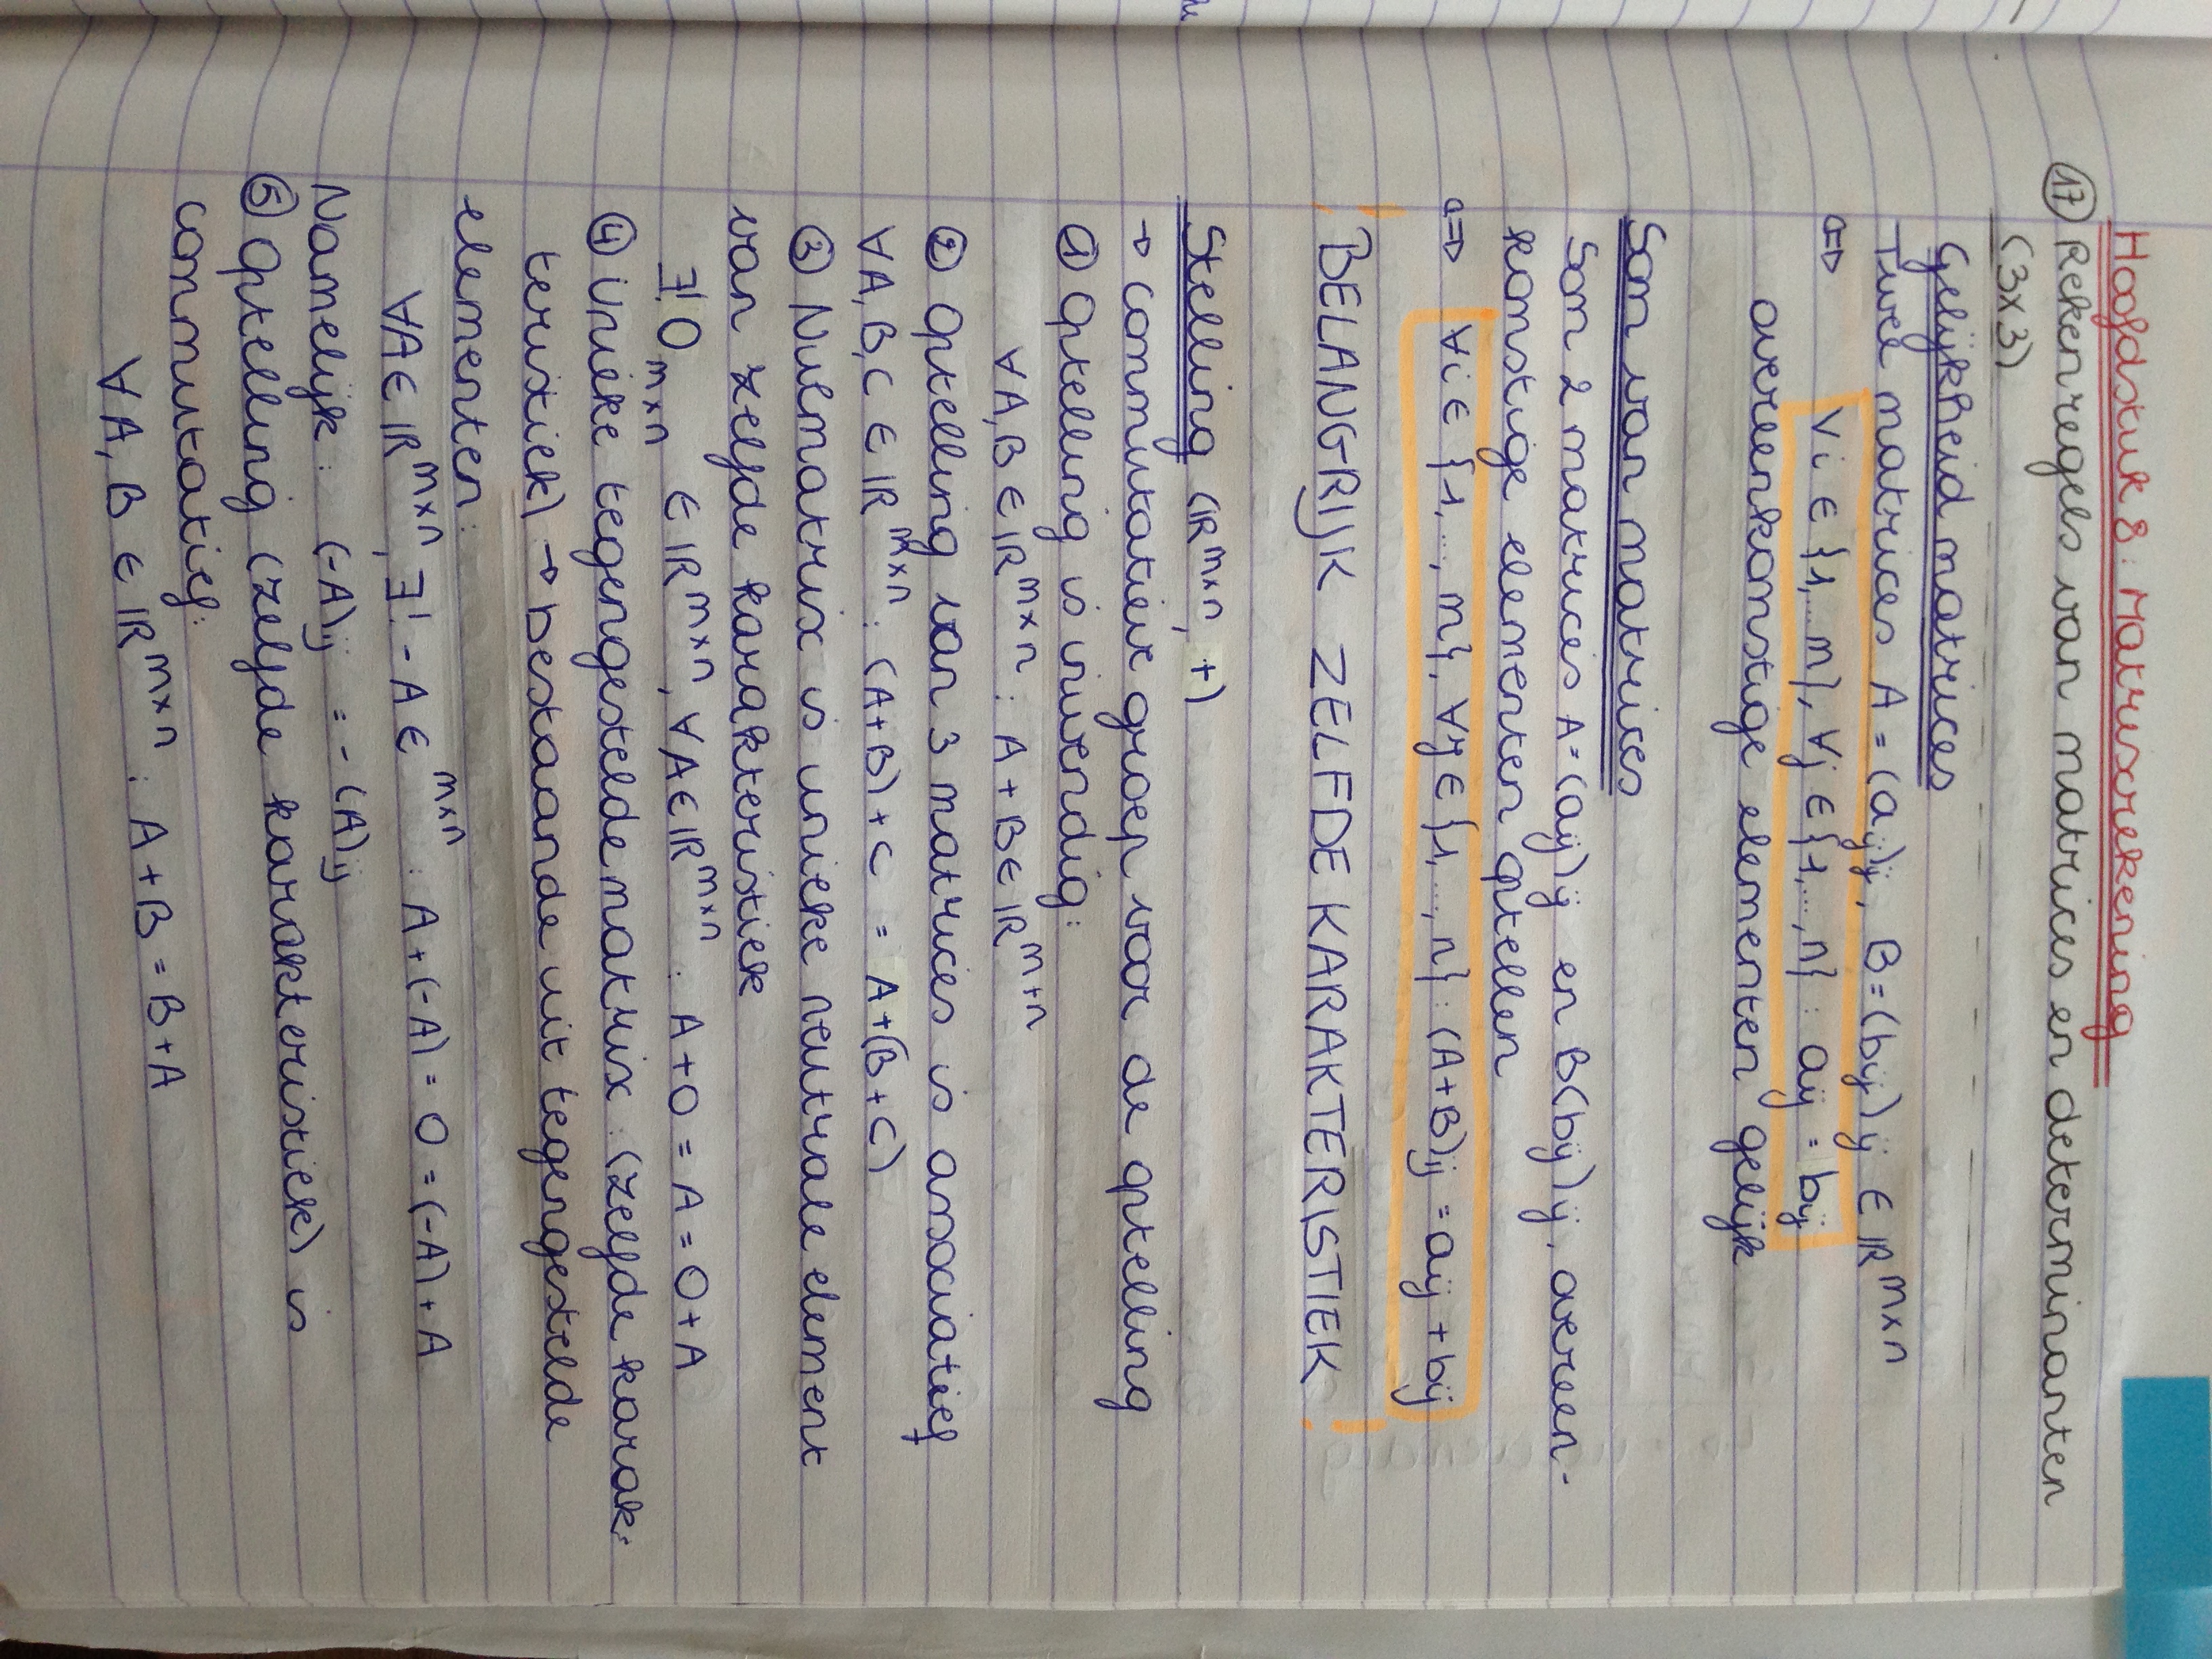 Hoofdstuk 8: Matrixrekening
⑰ Rekenregels van matrices en determinanten
(3x3)
Gelijkheid matrices
Twee matrices A = (aij)ij, B = (bij)ij ∈ ℝ^m×n
⇔ ∀i ∈ {1,...m}, ∀j ∈ {1,...,n} : aij = bij
overeenkomstige elementen gelijk
Som van matrices
Som 2 matrices A = (aij)ij en B(bij)ij, overeen-
komstige elementen optellen
⇔ ∀i ∈ {1,...,m}, ∀j ∈ {1,...,n} : (A+B)ij = aij + bij
BELANGRIJK ZELFDE KARAKTERISTIEK
Stelling (ℝ^m×n, +)
→ commutatieve groep voor de optelling
① Optelling is inwendig:
∀A, B ∈ ℝ^m×n : A + B ∈ ℝ^m+n
② Optelling van 3 matrices is associatief
∀A, B, C ∈ ℝ^m×n : (A+B) + C = A+(B+C)
③ Nulmatrix is unieke neutrale element
van zelfde karakteristiek
∃! O m×n ∈ ℝ^m×n, ∀A ∈ ℝ^m×n : A + O = A = O + A
④ Unieke tegengestelde matrix (zelfde karak-
teristiek) → bestaande uit tegengestelde
elementen:
∀A ∈ ℝ^m×n, ∃! -A ∈ ^m×n : A + (-A) = O = (-A) + A
Namelijk : (-A)ij = - (A)ij
⑤ Optelling (zelfde karakteristiek) is
commutatief:
∀A, B ∈ ℝ^m×n : A + B = B + A